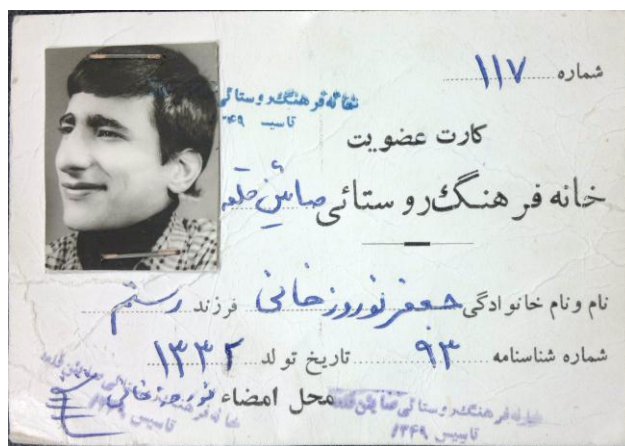 شماره ۱۱۷
خانه فرهنگ روستائی
تاسیس ۴۹
کارت عضویت
خانه فرهنگ روستائی صائین قلعه
نام و نام خانوادگی جعفر نوروزخانی فرزند رستم
شماره شناسنامه ۹۳ تاریخ تولد ۱۳۳۲
محل امضاء نوروزخانی
خانه فرهنگ روستائی صائین قلعه
تاسیس ۱۳۴۹
خانه فرهنگ روستائی صائین قلعه
تاسیس ۱۳۴۹